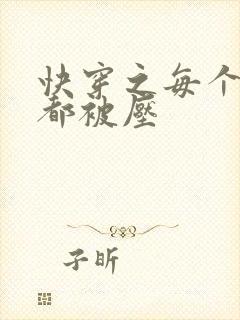 快穿之每个
都被壓
子昕